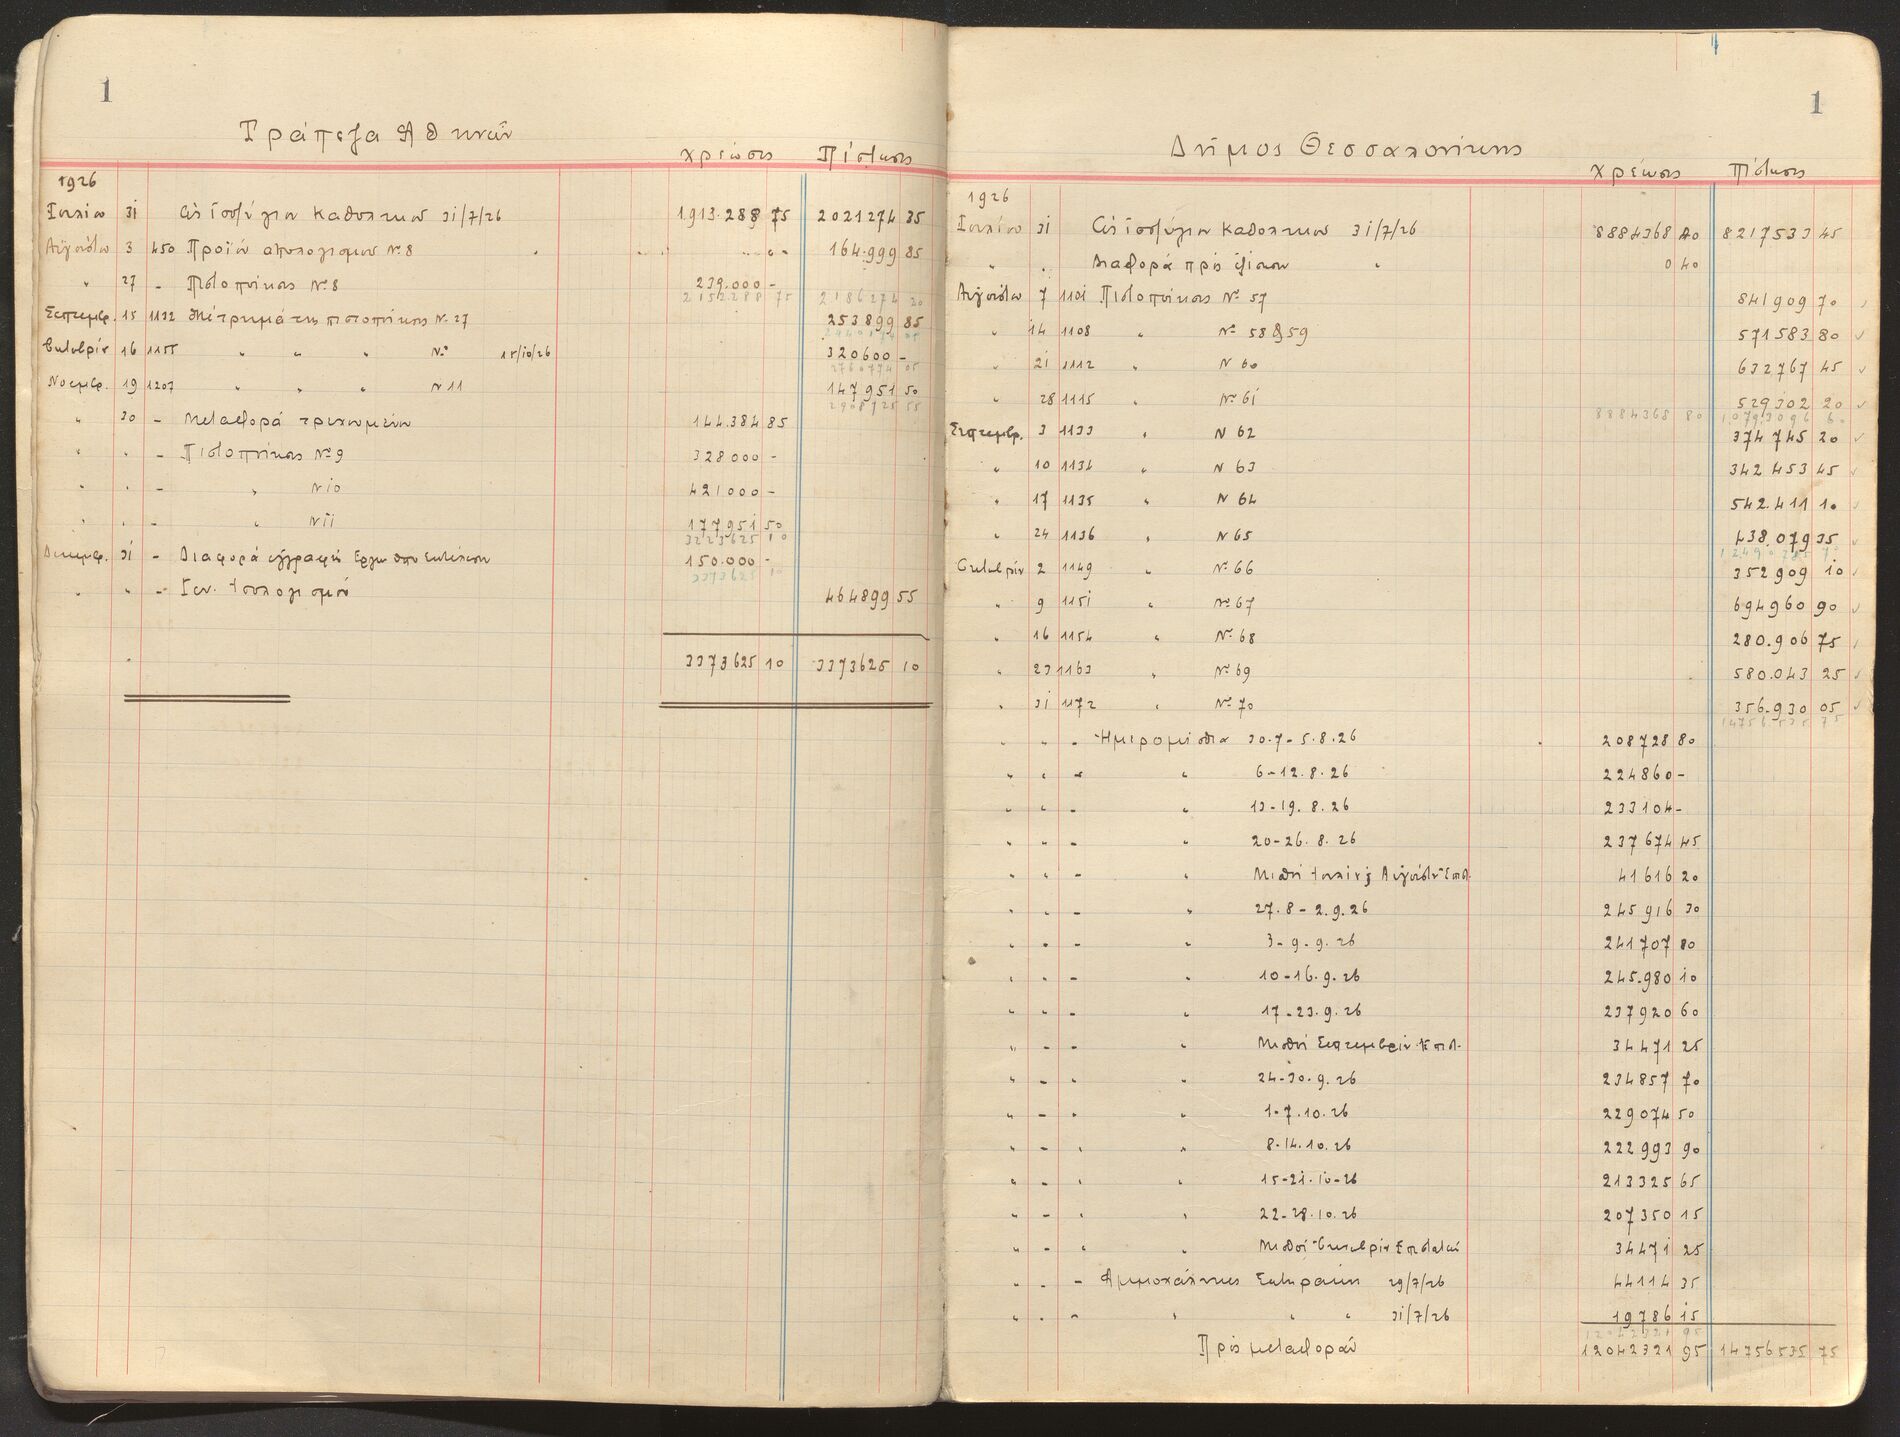 1
Τράπεζα Αθηνών
Χρέωσις Πίστωσις
1926
Ιουλίου 31 Ως ισοζύγιον Καθολικού 31/7/26 1913.288 75 2021274 35
Αυγούστου 3 450 Προϊόν απολογισμού Νο 8 164.999 85
" 27 - Πιστοποίησις Νο 8 239.000 -
2152288 75 2186274 20
Σεπτεμβρ. 15 1132 πιστοποιήσεως Νο 27 253899 85
2440174 05
Οκτωβρίου 16 1155 " " " Νο 15/10/26 320600 -
2760774 05
Νοεμβρ. 19 1207 " " " Ν 11 147951 50
2908725 55
" 30 - Μεταφορά 144.384 85
" " - Πιστοποίησις Νο 9 328000 -
" " - " Ν 10 421000 -
" " - " Ν 11 177951 50
3223625 10
Δεκεμβρ. 31 - Διαφορά 150.000 -
3373625 10
" " - Γεν. Ισολογισμού 464899 55
3373625 10 3373625 10
1
Δήμος Θεσσαλονίκης
Χρέωσις Πίστωσις
1926
Ιουλίου 31 Ως ισοζύγιον Καθολικού 31/7/26 8884368 40 8217533 45
" " Διαφορά προς εξίσωσιν " 0 40
Αυγούστου 7 1101 Πιστοποίησις Νο 57 841909 70
" 14 1108 " Νο 58&59 571583 80
" 21 1112 " Ν 60 632767 45
" 28 1115 " Νο 61 529302 20
8884368 80 10793096 60
Σεπτεμβρ. 3 1133 " Ν 62 374745 20
" 10 1134 " Ν 63 342453 45
" 17 1135 " Ν 64 542.411 10
" 24 1136 " Ν 65 438.079 35
12490785 70
Οκτωβρίου 2 1149 " Νο 66 352909 10
" 9 1151 " Νο 67 694960 90
" 16 1154 " Νο 68 280.906 75
" 23 1163 " Νο 69 580.043 25
" 31 1172 " Νο 70 356.930 05
14756535 75
" " - Ημερομίσθια 30.7-5.8.26 208728 80
" " - " 6-12.8.26 224860 -
" " - " 13-19.8.26 233104 -
" " - " 20-26.8.26 237674 45
" " - " Μισθοί Ιουλίου & Αυγούστου Επιστ. 41616 20
" " - " 27.8-2.9.26 245916 30
" " - " 3-9.9.26 241707 80
" " - " 10-16.9.26 245.980 10
" " - " 17-23.9.26 237920 60
" - - " Μισθοί Σεπτεμβρίου Επιστ. 34471 25
" - " " 24-30.9.26 234857 70
" - " " 1-7.10.26 229074 50
" - " " 8-14.10.26 222993 90
" - " " 15-21-10-26 213325 65
" - " " 22-28.10.26 207350 15
" - " " Μισθοί Οκτωβρίου Επιστατών 34471 25
" " - Αμμοχάλικες 29/7/26 44114 35
" " - " " " 31/7/26 19786 15
12042321 95
Προς μεταφοράν 12042321 95 14756535 75